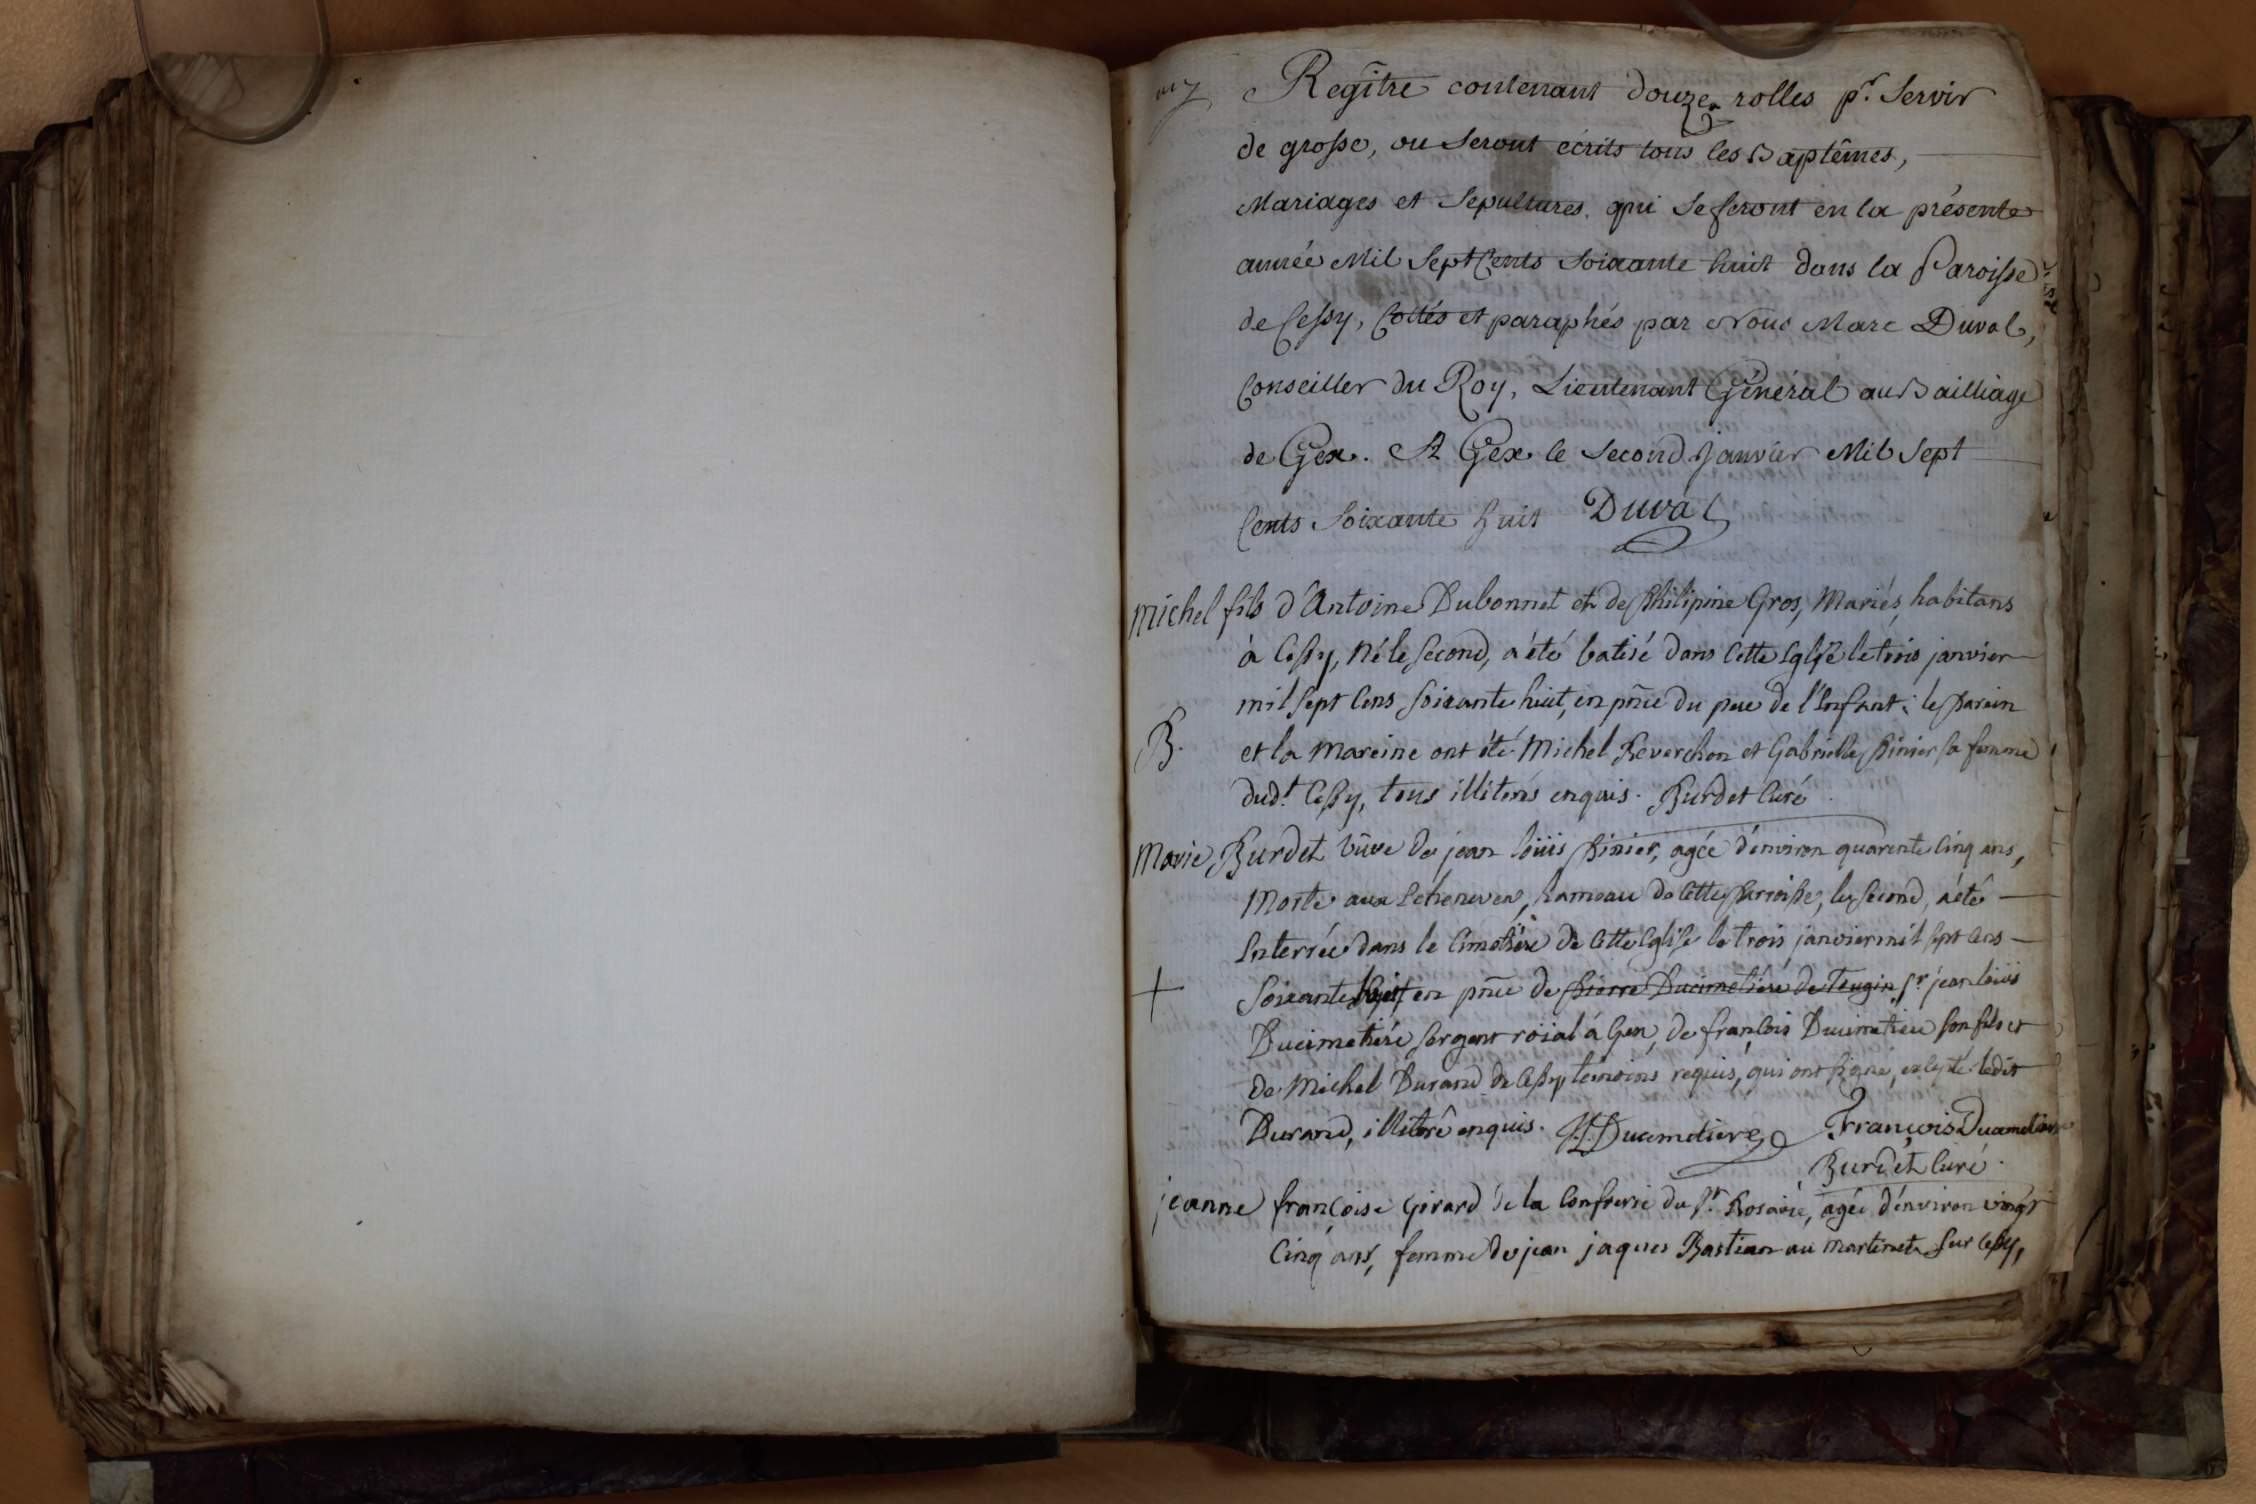 Regitre contenant douze rolles pr. Servir
de grosse, ou Seront écrits tous les Baptêmes,
Mariages et Sepultures qui se feront en la présente
année Mil Sept Cents Soixante huit dans la Paroisse
de Cessy, Cottés et paraphés par Nous Marc Duval,
Conseiller du Roy, Lieutenant Général au Bailliage
de Gex. A Gex le Second Janvier Mil Sept
Cents Soixante huit Duval
Michel fils d'Antoine Dubonnet et de Philipine Gros, Mariés, habitans
à Cessy, Né le Second, a été batisé dans Cette Eglise le trois janvier
mil Sept Cens Soixante huit, en pñce du pere de l'Enfant; le Parein
B. et la Mareine ont été Michel Reverchon et Gabrielle Pinier sa femme
dudt. Cessy, tous illiterés enquis. Burdet Curé
Marie Burdet vûve de jean loüis Pinier, agée d'énviron quarente Cinq ans,
Morte aux hameau de Cette Parroisse, le Second, a été
Enterrée dans le Cimetière de Cette Eglise le trois janvier mil Sept Cens
+ Soixante huit en pñce de Pierre Ducimetiére de Tougin Sr. jean loüis
Ducimetiére Sergent roïal á Gex, de François Ducimetiere son fils et
de Michel Durand de Cessy, témoins requis, qui ont Signé, excepté ledit
Durand, illiteré enquis. JL Ducimetiere François Ducimetiere
Burdet Curé.
jeanne françoise Girard de la Confrerie du St. Rosaire, agée d'énviron vingt
Cinq ans, femme de jean jaques Bastian au martinet Sur Cessy,